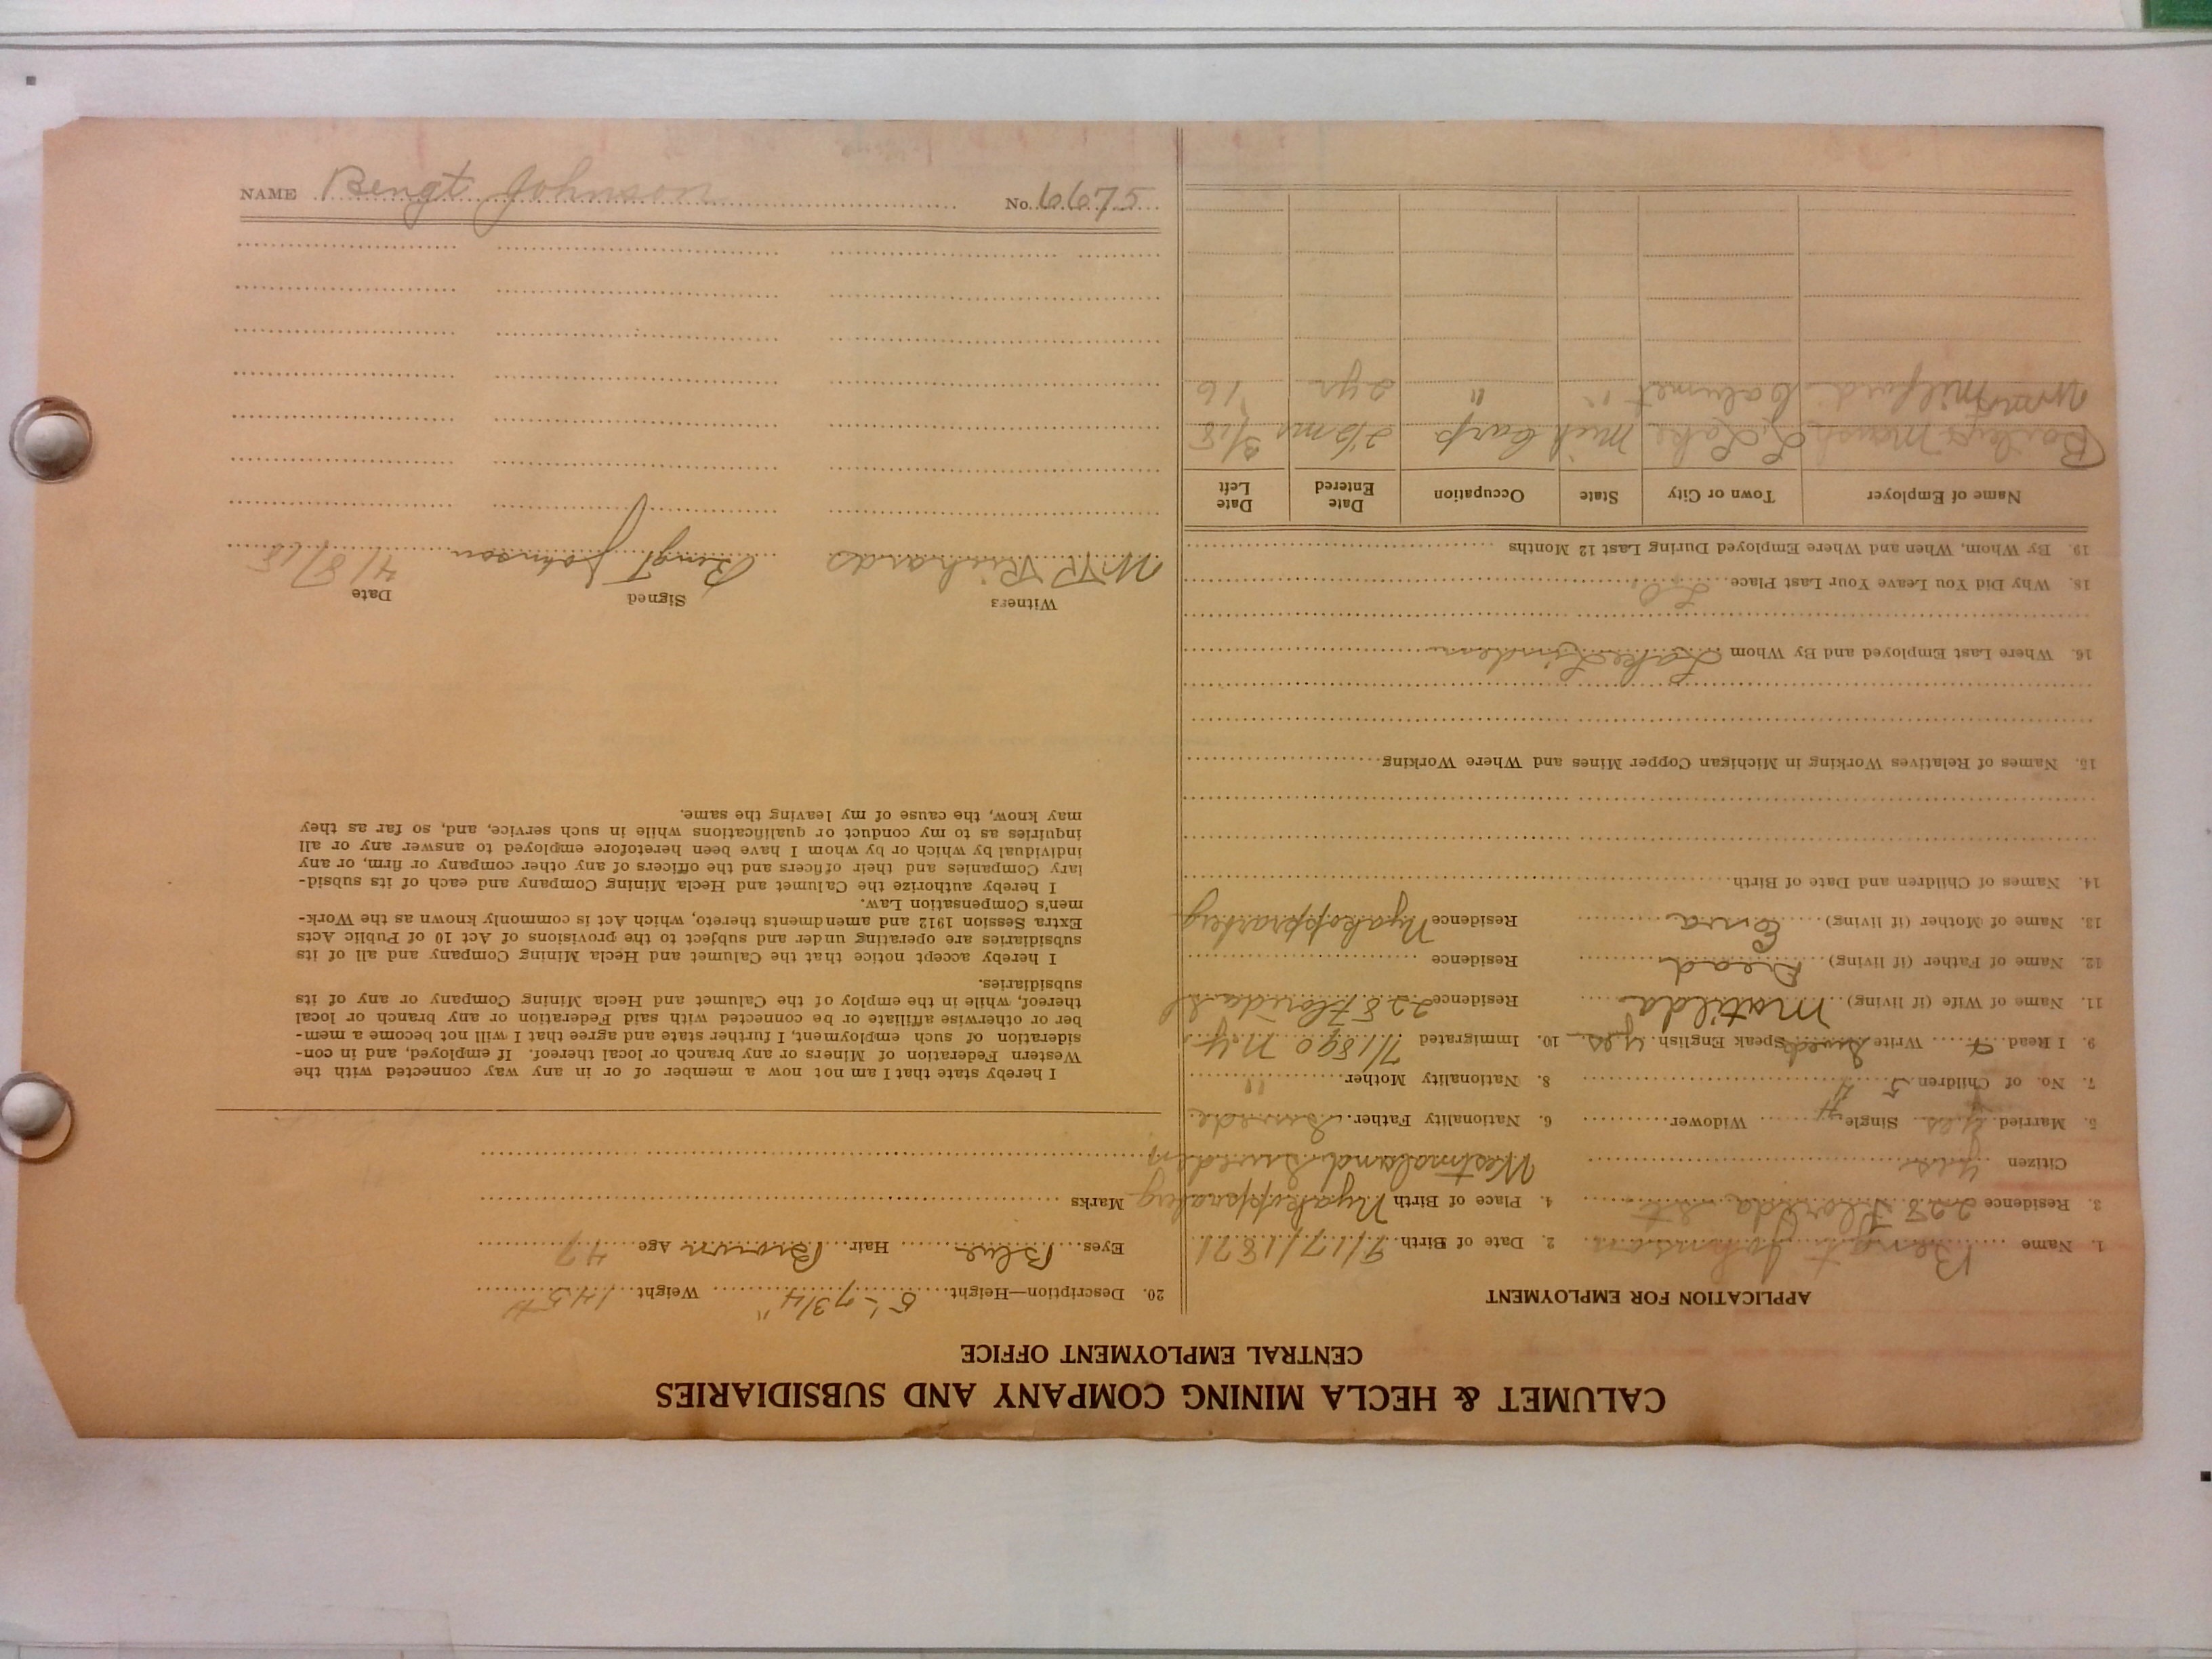 NAME Bengt Johnson No. 6675
CALUMET & HECLA MINING COMPANY AND SUBSIDIARIES
CENTRAL EMPLOYMENT OFFICE
APPLICATION FOR EMPLOYMENT
1. Name Bengt Johnson 2. Date of Birth 9/17/1871
3. Residence 228 Florida St. 4. Place of Birth Nyakopparberg
Citizen yes Westmaland Sweden
5. Married yes Single Widower 6. Nationality Father Swede
7. No. of Children 5 8. Nationality Mother "
9. I Read Write Swed Speak English yes 10. Immigrated 7/1890 N.Y.
11. Name of Wife (if living) Matilda Residence 228 Florida St
12. Name of Father (if living) Dead Residence
13. Name of Mother (if living) Residence Nyakopparberg
14. Names of Children and Date of Birth
15. Names of Relatives Working in Michigan Copper Mines and Where Working
16. Where Last Employed and By Whom Lake Linden
18. Why Did You Leave Your Last Place
19. By Whom, When and Where Employed During Last 12 Months
Name of Employer Town or City State Occupation Date Entered Date Left
L. Lake Mich Carp
Milford Calumet " " 2 yr 16
20. Description—Height 5'-7 3/4" Weight 145#
Eyes Blue Hair Brown Age 47
Marks
I hereby state that I am not now a member of or in any way connected with the
Western Federation of Miners or any branch or local thereof. If employed, and in con-
sideration of such employment, I further state and agree that I will not become a mem-
ber or otherwise affiliate or be connected with said Federation or any branch or local
thereof, while in the employ of the Calumet and Hecla Mining Company or any of its
subsidiaries.
I hereby accept notice that the Calumet and Hecla Mining Company and all of its
subsidiaries are operating under and subject to the provisions of Act 10 of Public Acts
Extra Session 1912 and amendments thereto, which Act is commonly known as the Work-
men's Compensation Law.
I hereby authorize the Calumet and Hecla Mining Company and each of its subsid-
iary Companies and their officers and the officers of any other company or firm, or any
individual by which or by whom I have been heretofore employed to answer any or all
inquiries as to my conduct or qualifications while in such service, and, so far as they
may know, the cause of my leaving the same.
Witness Signed Date
Richards Bengt Johnson 4/8/18